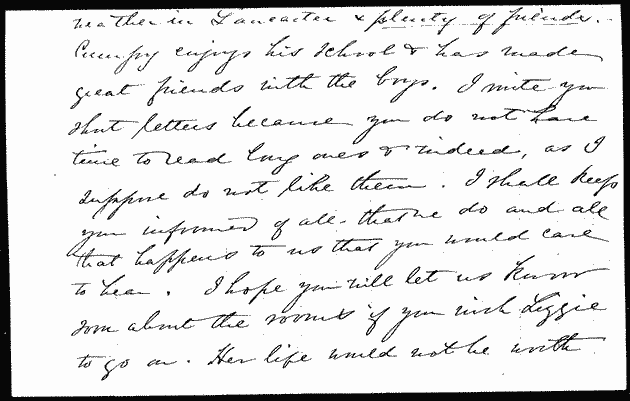 weather in Lancaster & plenty of friends.
Cumpy enjoys his school & has made
great friends with the boys. I write you
short letters because you do not have
time to read long ones & indeed, as I
suppose do not like them. I shall keep
you informed of all that we do and all
that happens to us that you would care
to hear. I hope you will let us know
soon about the rooms if you wish Lizzie
to go on. Her life would not be worth